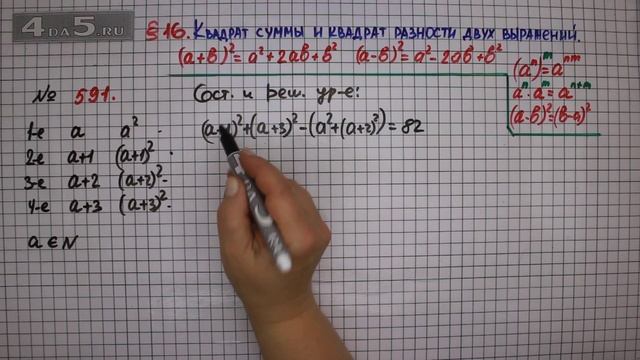 4DA5.RU
§16. Квадрат суммы и квадрат разности двух выражений.
(a+b)²=a²+2ab+b² (a-b)²=a²-2ab+b²
(aⁿ)ᵐ=aⁿᵐ
aⁿ·aᵐ=aⁿ⁺ᵐ
(a-b)²=(b-a)²
№ 591.
Сост. и реш. ур-е:
1-е a a²
2-е a+1 (a+1)²
3-е a+2 (a+2)²
4-е a+3 (a+3)²
(a+1)²+(a+3)²-(a²+(a+2)²)=82
a∈N